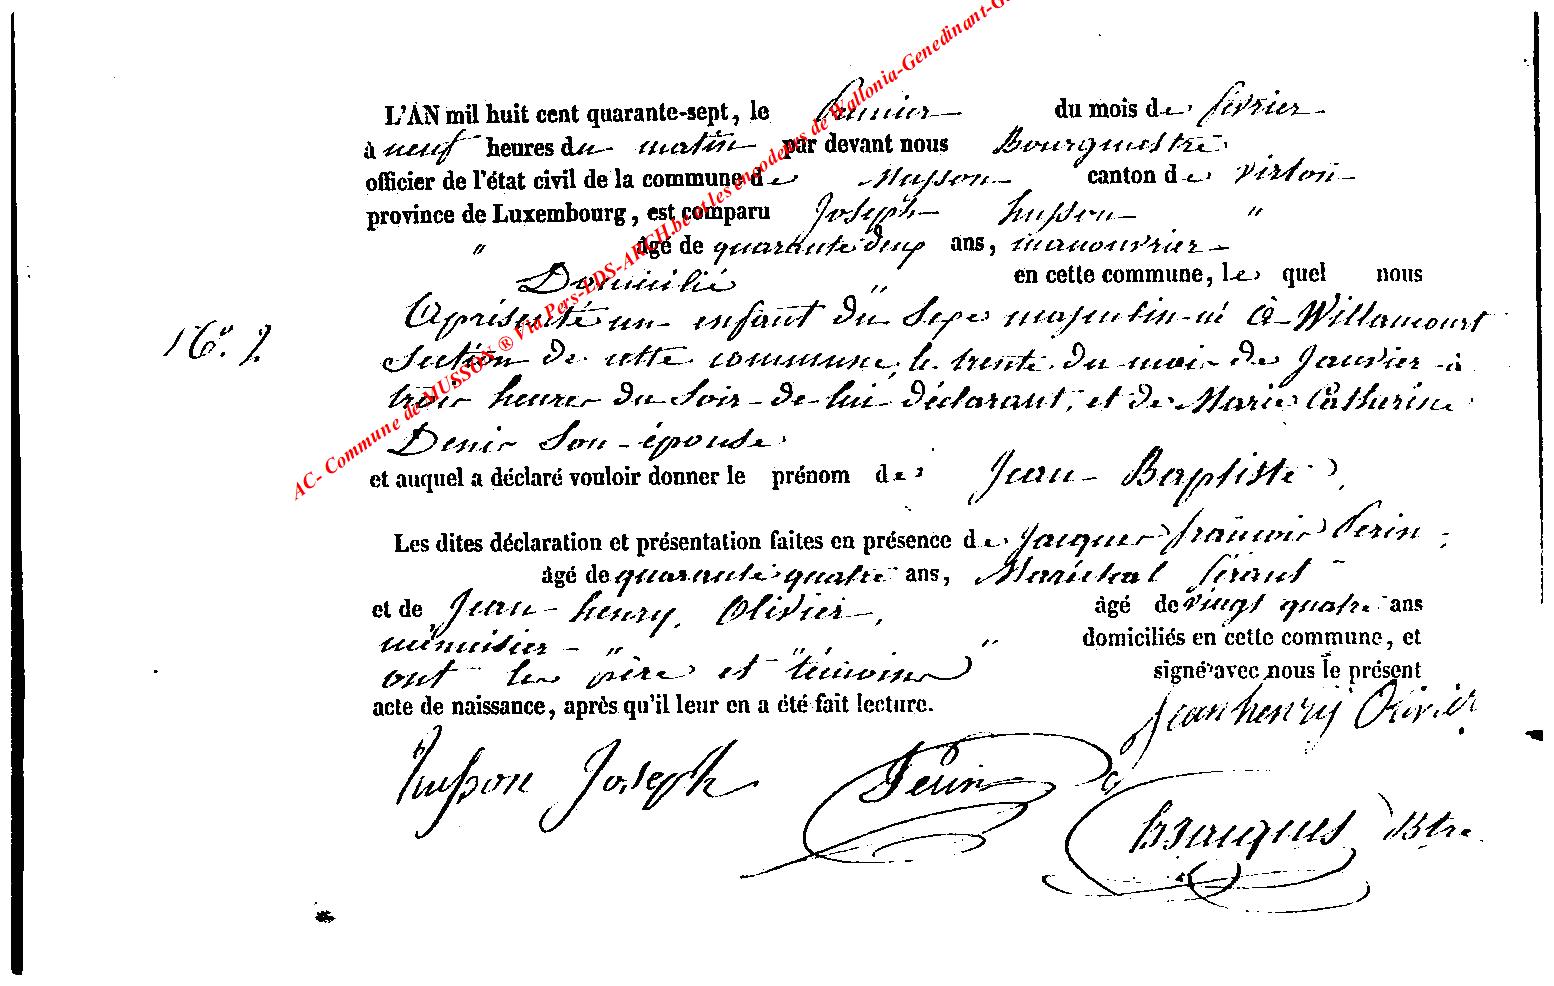 L'AN mil huit cent quarante-sept, le premier du mois de février
à neuf heures du matin par devant nous Bourgmestre
officier de l'état civil de la commune de Musson canton de Virton
province de Luxembourg, est comparu Joseph husson "
" âgé de quarante deux ans, manouvrier
Domicilié en cette commune, lequel nous
a présenté un enfant du sexe masculin né à Willancourt
section de cette commune, le trente du mois de Janvier à
trois heures du soir de lui déclarant, et de Marie Catherine
Denis son épouse
et auquel a déclaré vouloir donner le prénom de Jean Baptiste,
N°. 2.
Les dites déclaration et présentation faites en présence de Jacques françois Perin
âgé de quarante quatre ans, Maréchal ferant
et de Jean henry Olivier, âgé de vingt quatre ans
menuisier " " domiciliés en cette commune, et
ont les père et témoins signé avec nous le présent
acte de naissance, après qu'il leur en a été fait lecture.
Jean henry Olivier
husson Joseph Perin
Btre
AC- Commune de MUSSON ® Via Pers-LDS-ARCH.be et les encodeurs de Wallonia-Genedinant-G